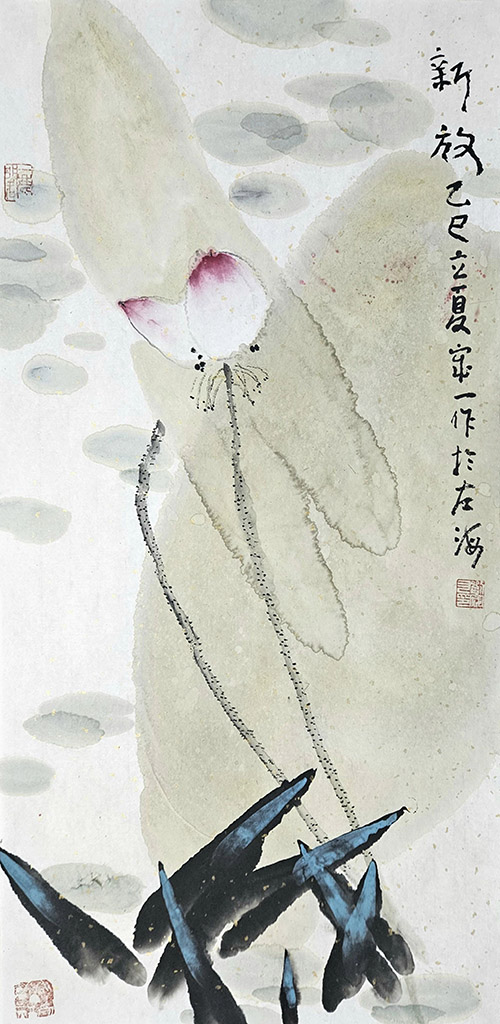 新放己巳立夏宗一作於左海